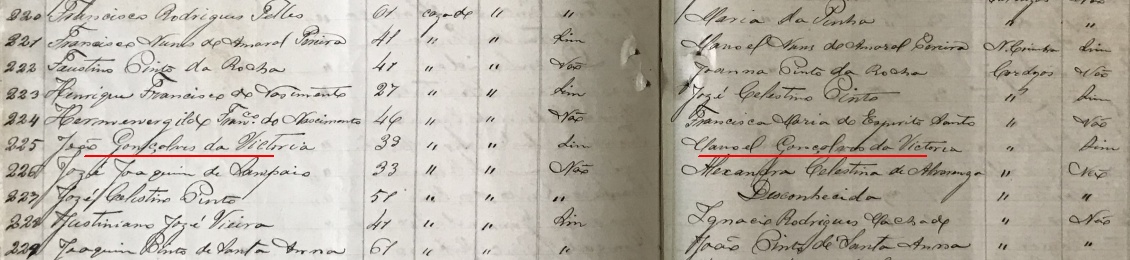 220 Francisco Rodrigues Telles 61 cazado " " Maria da Penha " "
221 Francisco Nunes do Amaral Pereira 41 " " Sim Manoel Nunes do Amaral Pereira Sim
222 Faustino Pinto da Rocha 41 " " Não Joanna Pinto da Rocha Não
223 Henrique Francisco do Nascimento 27 " " Sim Jozé Celestino Pinto " Sim
224 Hermenergildo Franco do Nascimento 46 " " Não Francisca Maria do Espirito Santo " Não
225 João Gonçalves da Victoria 39 " " Sim Manoel Gonçalves da Victoria " Sim
226 Jozé Joaquim de Sampaio 33 " " Não Alexandra Celestina de Alvarenga " Não
227 Jozé Celestino Pinto 51 " " " Desconhecida " "
228 Justiniano Jozé Vieira " " Sim Ignacio Rodrigues " Não
229 Joaquim Pinto de Santa Anna 61 " " " João Pinto de Santa Anna " "